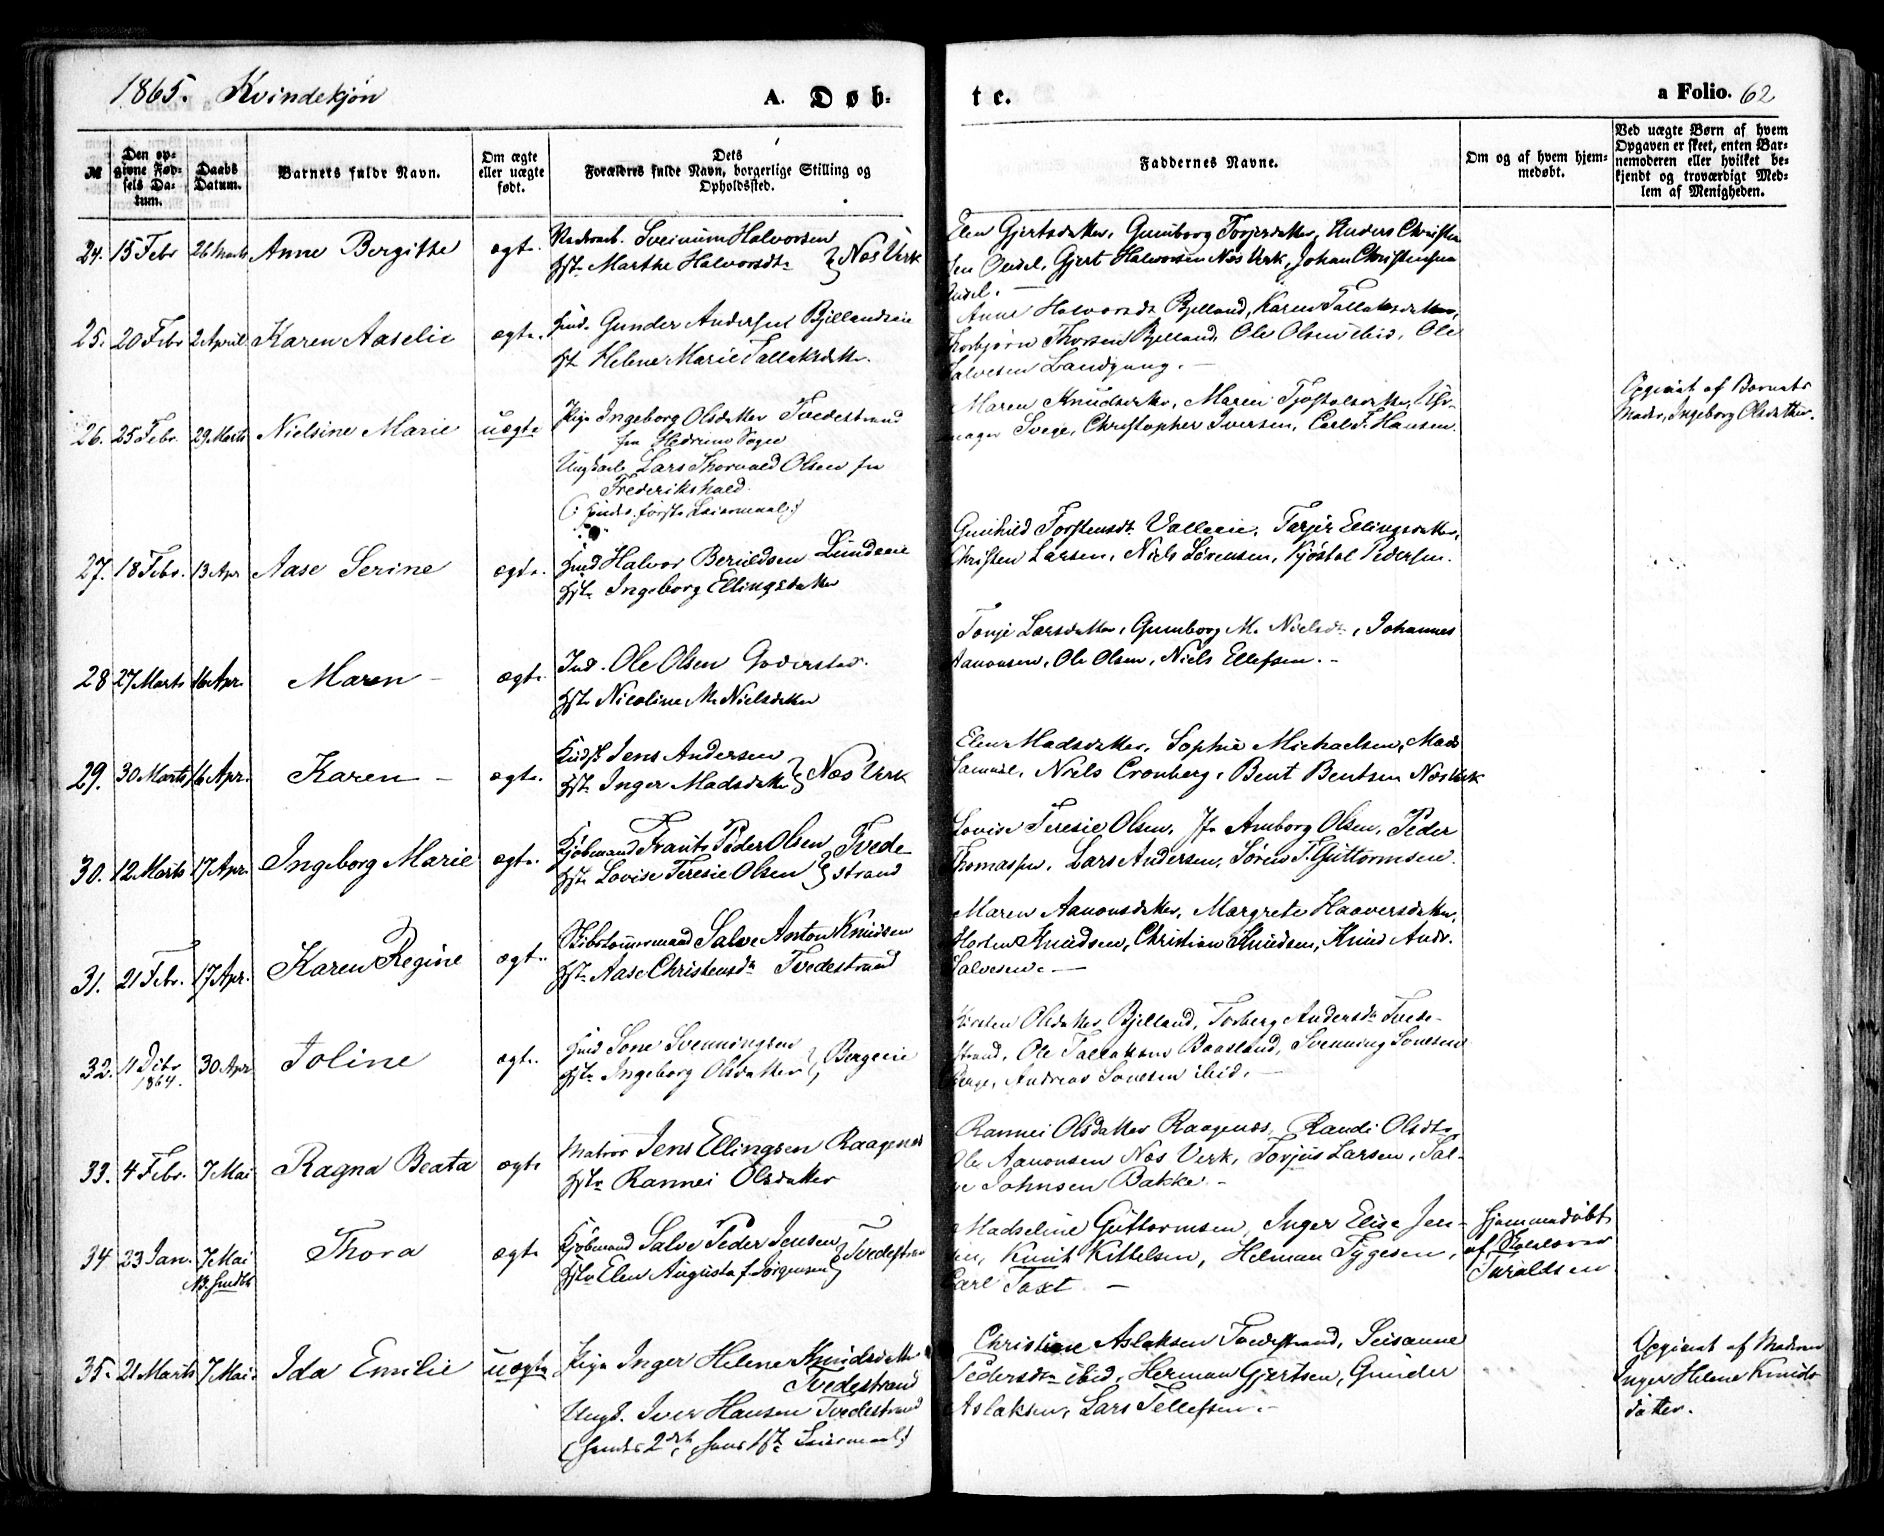 1865. Kvindekjøn
A. Døb-
te.
a Folio. 62
№
Den op-
givne Fød-
sels Da-
tum.
Daabs
Datum.
Barnets fulde Navn.
Om ægte
eller uægte
født.
Dets
Forældres fulde Navn, borgerlige Stilling og
Opholdssted.
Faddernes Navne.
Om og af hvem hjem-
medøbt.
Ved uægte Børn af hvem
Opgaven er skeet, enten Bar-
nemoderen eller hvilket be-
kjendt og troværdigt Med-
lem af Menigheden.
24. 15 Febr 26 Marts Anne Bergitte ægte. Sveinum Halvorsen
Hst. Marthe Halvorsdtr } Næs Verk
Elen Gjertsdatter, Gunborg Torjersdatter, Anders Christen
sen Gjert Halvorsen Næs Verk, Johan Christensen
25. 20 Febr 2 April Karen Aaselie ægte. Hmd. Gunder Andersen Bjellandseie
Hst. Helene Marie Tallaksdatter
Anne Halvorsdt Bjelland, Karen Tallaksdatter,
Thorbjørn Thorsen Bjelland, Ole Olsen ibid, Ole
Salvesen Landgang. -
26. 25 Febr. 29 Marts Nielsine Marie uægte Pige Ingeborg Olsdatter Tvedestrand
fra Hedrum Sogn
Ungkarl Lars Thorvald Olsen fra
Frederikshald.
(: begdes første Leiermaal :)
Maren Knudsdatter, Maren Tjøstolsdatter, Uhr-
mager Svege, Christopher Iversen, Carl F. Hansen.
Opgivet af Barnets
Moder, Ingeborg Olsdatter.
27. 18 Febr. 13 Apr Aase Serine ægte. Hmd Halvor Beruldsen Lundeeie
Hst. Ingeborg Ellingsdatter
Gunhild Torstensdt. Valleeie, Tarjer Ellingsdatter,
Christen Larsen, Niels Sørensen, Tjøstol Pedersen.
28 27 Marts 16 Apr. Maren - ægte. Ind. Ole Olsen Goderstad.
Hst. Nicoline M. Nielsdatter
Tonje Larsdatter, Gunborg M. Nielsdt., Johannes
Aanonsen, Ole Olsen, Niels Ellefsen. -
29. 30 Marts 16 Apr. Karen - ægte. Jens Andersen
Hst. Inger Madsdatter } Næs Verk
Elen Madsdatter, Sophie Michaelsen, Mads
Samuel, Niels Cronberg, Bent Bentsen Næs Verk
30. 12 Marts 17 Apr. Ingeborg Marie ægte. Kjøbmand Frants Peder Olsen
Hst. Lovise Teresie Olsen } Tvede-
strand
Lovise Teresie Olsen, Jfr Amborg Olsen, Peder
Thomassen, Lars Andersen, Søren T. Guttormsen.
31. 21 Febr. 17 Apr. Karen Regine ægte. Skibstømmermand Salve Anton Knudsen
Hst. Aase Christensdt Tvedestrand
Maren Aanonsdatter, Margrete Haaversdatter,
Morten Knudsen, Christian Knudsen, Knud Andr.
Salvesen. -
32. 11 Debr
1864. 30 Apr Joline ægte. Hmd Sone Svenningsen
Hst. Ingeborg Olsdatter } Bergeeie
Kirsten Olsdatter Bjelland, Torberg Andersdt Tvede-
strand, Ole Tallaksen Baasland, Svenning Sonesen
Berge, Andreas Sonesen ibid. -
33. 4 Febr. 7 Mai Ragna Beata ægte Matros Jens Ellingsen Raagenæs
Hst. Rannei Olsdatter
Rannei Olsdatter Raagenæs, Randi Olsdtr
Ole Aanonsen Næs Verk, Torjus Larsen, Sal-
ve Johnsen Bakke -
34 23 Jan. 7 Mai
Thora ægte Kjøbmand Salve Peder Jensen
Hst. Elen Augusta f. Jørgensen } Tvedestrand
Madseline Guttormsen, Inger Elise Jen-
sen, Knut Kittelsen, Helman Tygesen,
Carl Taxt. -
Hjemmedøbt
af Skolelærer
Taraldsen
35. 21 Marts 7 Mai. Ida Emilie uægte Pige Inger Helene Knudsdatter
Tvedestrand
Ungk. Iver Hansen Tvedestrand
(hendes 2det, hans 1ste Leiermaal)
Christiane Aslaksen Tvedestrand, Susanne
Pedersdtr ibid, Herman Gjertsen, Gunder
Aslaksen, Lars Tellefsen. -
Opgivet af Moderen
Inger Helene Knuds
datter.